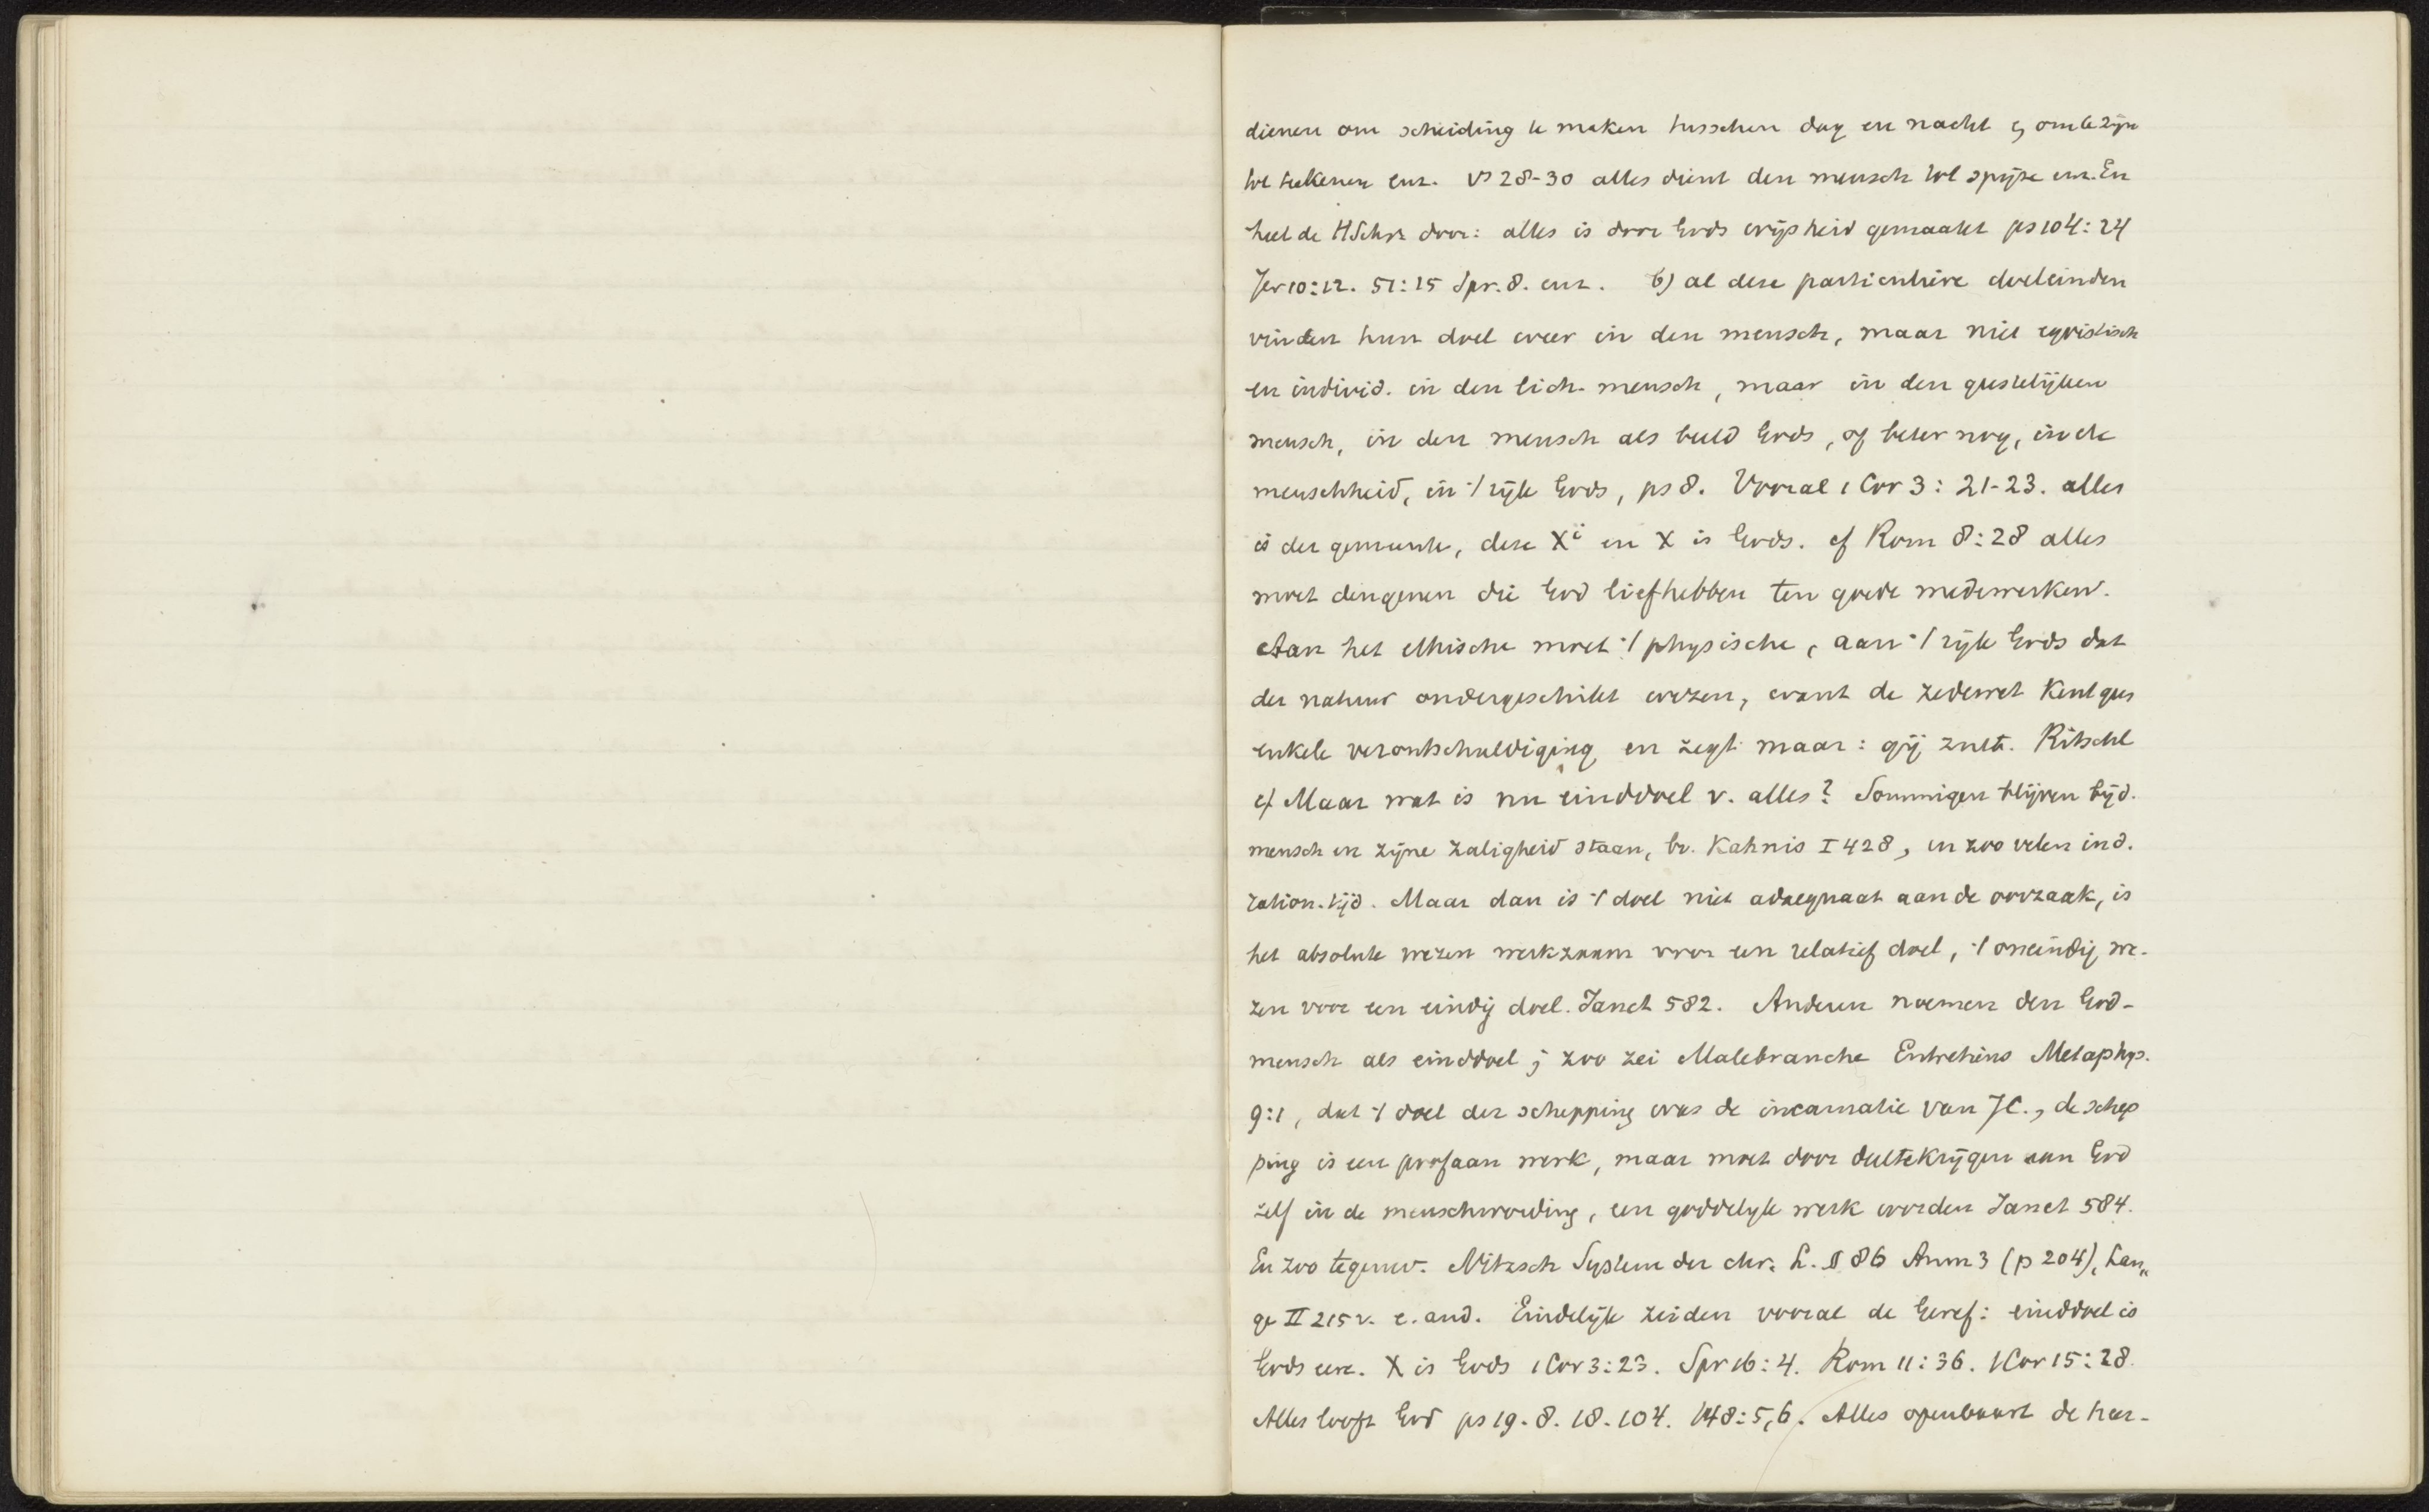 dienen om scheiding te maken tusschen dag en nacht & om te zijn
tot teekenen enz. vs 28-30 alles dient den mensch tot spijze enz. En
heel de HSchr. door: alles is door Gods wijsheid gemaakt ps 104: 24
Jer 10:12. 51:15 Spr. 8. enz. b) al deze particuliere doeleinden
vinden hun doel weer in den mensch, maar niet egoistisch
en individ. in den lich. mensch, maar in den geestelijken
mensch, in den mensch als beeld Gods, of beter nog, in de
menschheid, in ’t rijk Gods, ps 8. Vooral 1 Cor 3: 21-23. alles
is der gemeente, deze Xi en X is Gods. cf Rom 8:28 alles
moet dengenen die God liefhebben ten goede medewerken.
Aan het ethische moet ’t physische, aan ’t rijk Gods dat
der natuur ondergeschikt wezen, want de zedewet kent geen
enkele verontschuldiging en zegt maar: gij zult. Ritschl
c) Maar wat is nu einddoel v. alles? Sommigen blijven bij d.
mensch en zijne zaligheid staan, bv. Kahnis I 428, en zoo velen in d.
ration. tijd. Maar dan is ’t doel niet adaequaat aan de oorzaak, is
het absolute wezen werkzaam voor een relatief doel, ’t oneindig we-
zen voor een eindig doel. Janet 582. Anderen noemen den God-
mensch als einddoel; zoo zei Malebranche Entretiens Metaphys.
9:1, dat ’t doel der schepping was de incarnatie van JC., de schep
ping is een profaan werk, maar moet door deel te krijgen aan God
zelf in de menschwording, een goddelijk werk worden Janet 584.
En zoo tegenw. Nitzsch System der chr. L. § 86 Anm 3 (p 204), Lan„
ge II 215 v. e. and. Eindelijk zeiden vooral de Geref: einddoel is
Gods eere. X is Gods 1 Cor 3:23. Spr 16:4. Rom 11:36. 1 Cor 15:28.
Alles looft God ps 19. 8. 18. 104. 148:5,6. Alles openbaart de heer-